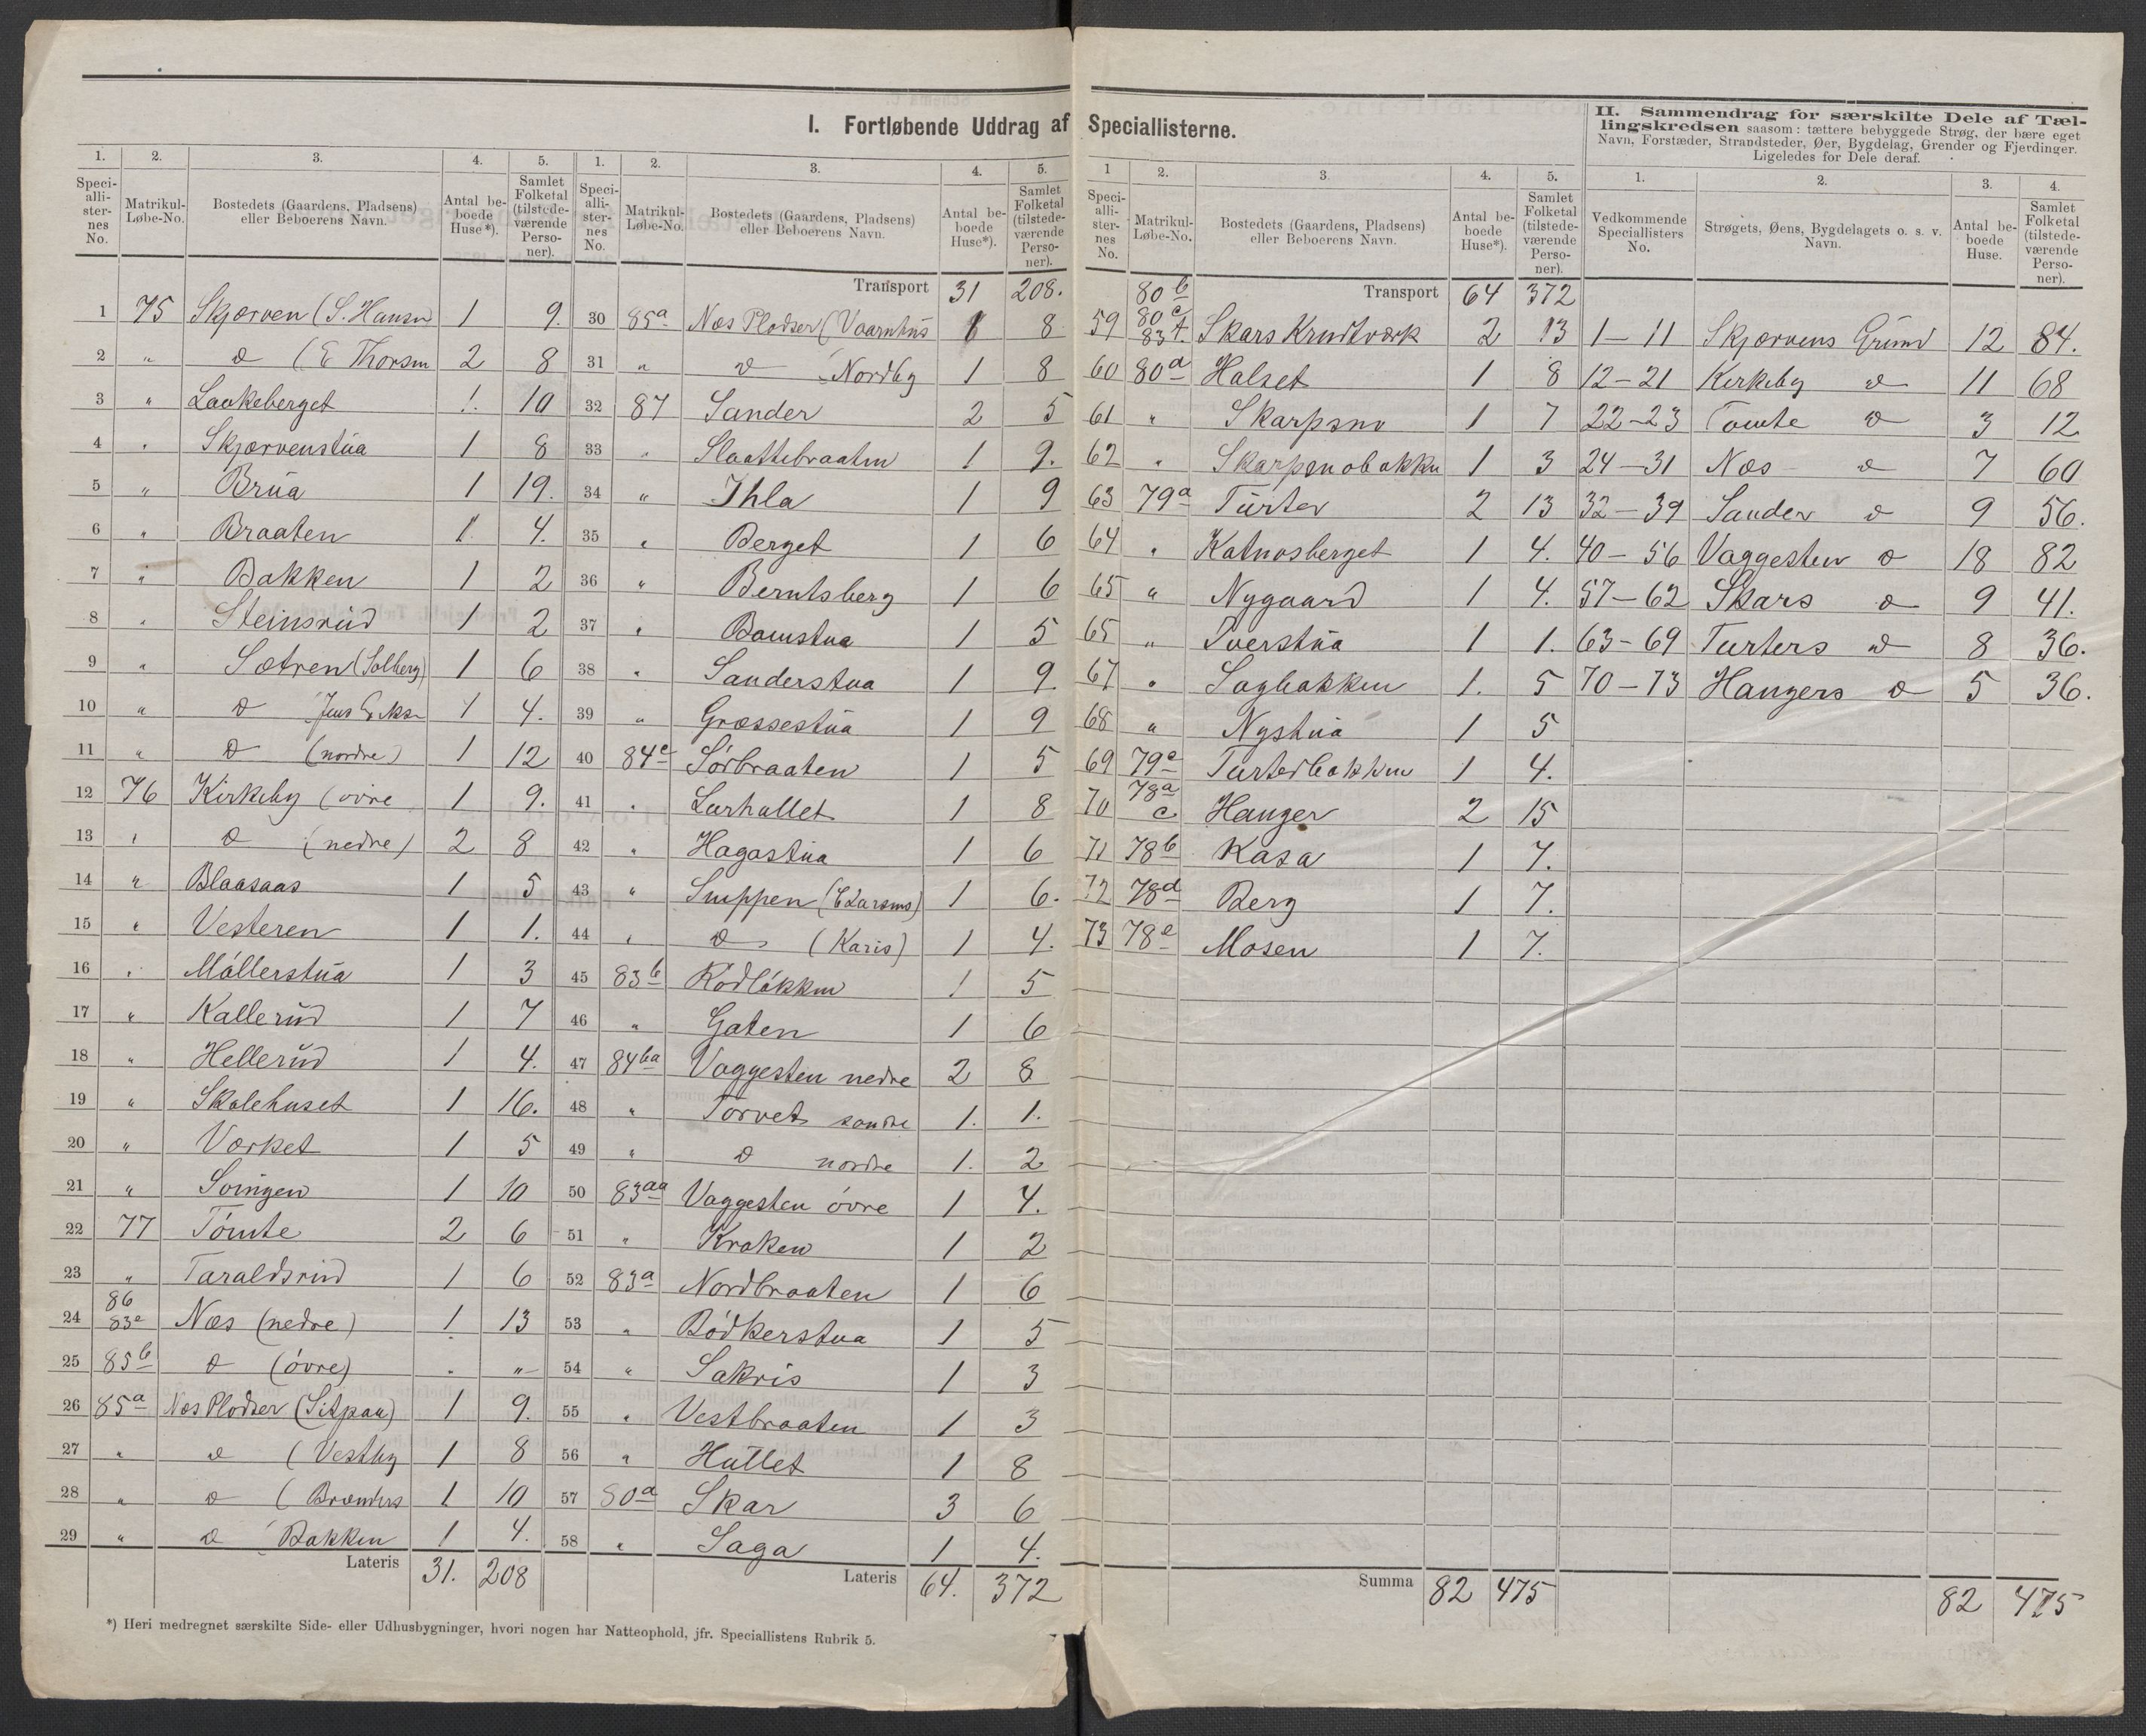 I. Fortløbende Uddrag af Speciallisterne.
1. 2. 3. 4. 5.
Speciallisternes No. Matrikul-Løbe-No. Bostedets (Gaardens, Pladsens) eller Beboerens Navn. Antal beboede Huse*). Samlet Folketal (tilstedeværende Personer).
1 75 Skjærven (S. Hansen 1 9.
2 " d (E Thorsen 2 8
3 " Laakeberget 1. 10
4 " Skjærvenstua 1 8
5 " Brua 1 19.
6 " Braaten 1 4.
7 " Bakken 1 2
8 " Steinsrud 1 2
9 " Sætren (Solberg) 1 6
10 " d Jens Eriks. 1 4.
11 " d (nordre) 1 12
12 76 Kirkeby (øvre 1 9.
13 " d (nedre) 2 8
14 " Blaasaas 1 5
15 " Vesteren 1 1.
16 " Møllerstua 1 3
17 " Kallerud 1 7
18 " Hellerud 1 4.
19 " Skolehuset 1 16.
20 " Værket 1 5
21 " Svingen 1 10
22 77 Tømte 2 6
23 " Taraldsrud 1 6
24 86 83e Næs (nedre) 1 13
25 85b d (øvre) " "
26 85a Næs Pladser (Sitpau) 1 9.
27 " d (Vestby 1 8
28 " d (Brenders 1 10
29 " d Bakken 1 4.
Lateris 31. 208
1. 2. 3. 4. 5.
Speciallisternes No. Matrikul-Løbe-No. Bostedets (Gaardens, Pladsens) eller Beboerens Navn. Antal beboede Huse*). Samlet Folketal (tilstedeværende Personer).
Transport 31 208.
30 85a Næs Pladser (Vaarnhus 1 8
31 " d Nordby 1 8
32 87 Sander 2 5
33 " Slaattebraaten 1 9.
34 " Ihla 1 9
35 " Berget 1 6
36 " Berntsberg 1 6
37 " Bomstua 1 5
38 " Sanderstua 1 9.
39 " Græssestua 1 9
40 84c Sørbraaten 1 5
41 " Larhallet 1 8
42 " Hagastua 1 6
43 " Snippen (E Larsens) 1 6.
44 " d (Karis) 1 4.
45 83b Rødløkken 1 5
46 " Gaten 1 6
47 84ba Vaggesten nedre 2 8
48 " Torvet søndre 1. 1.
49 " d nordre 1. 2
50 83aa Vaggesten øvre 1 4.
51 " Kroken 1 2
52 83a Nordbraaten 1 6
53 " Bødkerstua 1 5
54 " Sakris 1 3
55 " Vestbraaten 1 3
56 " Hullet 1 8
57 80a Skar 3 6
58 " Saga 1 4.
Lateris 64. 372
1 2. 3. 4. 5.
Speciallisternes No. Matrikul-Løbe-No. Bostedets (Gaardens, Pladsens) eller Beboerens Navn. Antal beboede Huse*). Samlet Folketal (tilstedeværende Personer).
Transport 64 372
59 80b 80c 83f. Skars Krudtværk 2 13
60 80a Halset 1 8
61 " Skarpsno 1 7
62 " Skarpsnobakken 1 3
63 79a Turter 2 13
64 " Katnosberget 1 4.
65 " Nygaard 1 4.
65 " Tverstua 1 1.
67 " Sagbakken 1. 5
68 " Nystua 1 5
69 79c Turterbakken 1 4.
70 78a c Hanger 2 15
71 78b Kasa 1 7.
72 78d Berg 1 7.
73 78e Mosen 1 7.
Summa 82 475
II. Sammendrag for særskilte Dele af Tællingskredsen saasom: tættere bebyggede Strøg, der bære eget Navn, Forstæder, Strandsteder, Øer, Bygdelag, Grender og Fjerdinger. Ligeledes for Dele deraf.
1. 2. 3. 4.
Vedkommende Speciallisters No. Strøgets, Øens, Bygdelagets o. s. v. Navn. Antal beboede Huse. Samlet Folketal (tilstedeværende Personer).
1–11 Skjærvens Grund 12 84.
12–21 Kirkeby d 11 68
22–23 Tømte d 3 12
24–31 Næs d 7 60
32–39 Sander d 9 56.
40–56 Vaggesten d 18 82
57–62 Skars d 9 41.
63–69 Turters d 8 36.
70–73 Hangers d 5 36.
82 475
*) Heri medregnet særskilte Side- eller Udhusbygninger, hvori nogen har Natteophold, jfr. Speciallistens Rubrik 5.